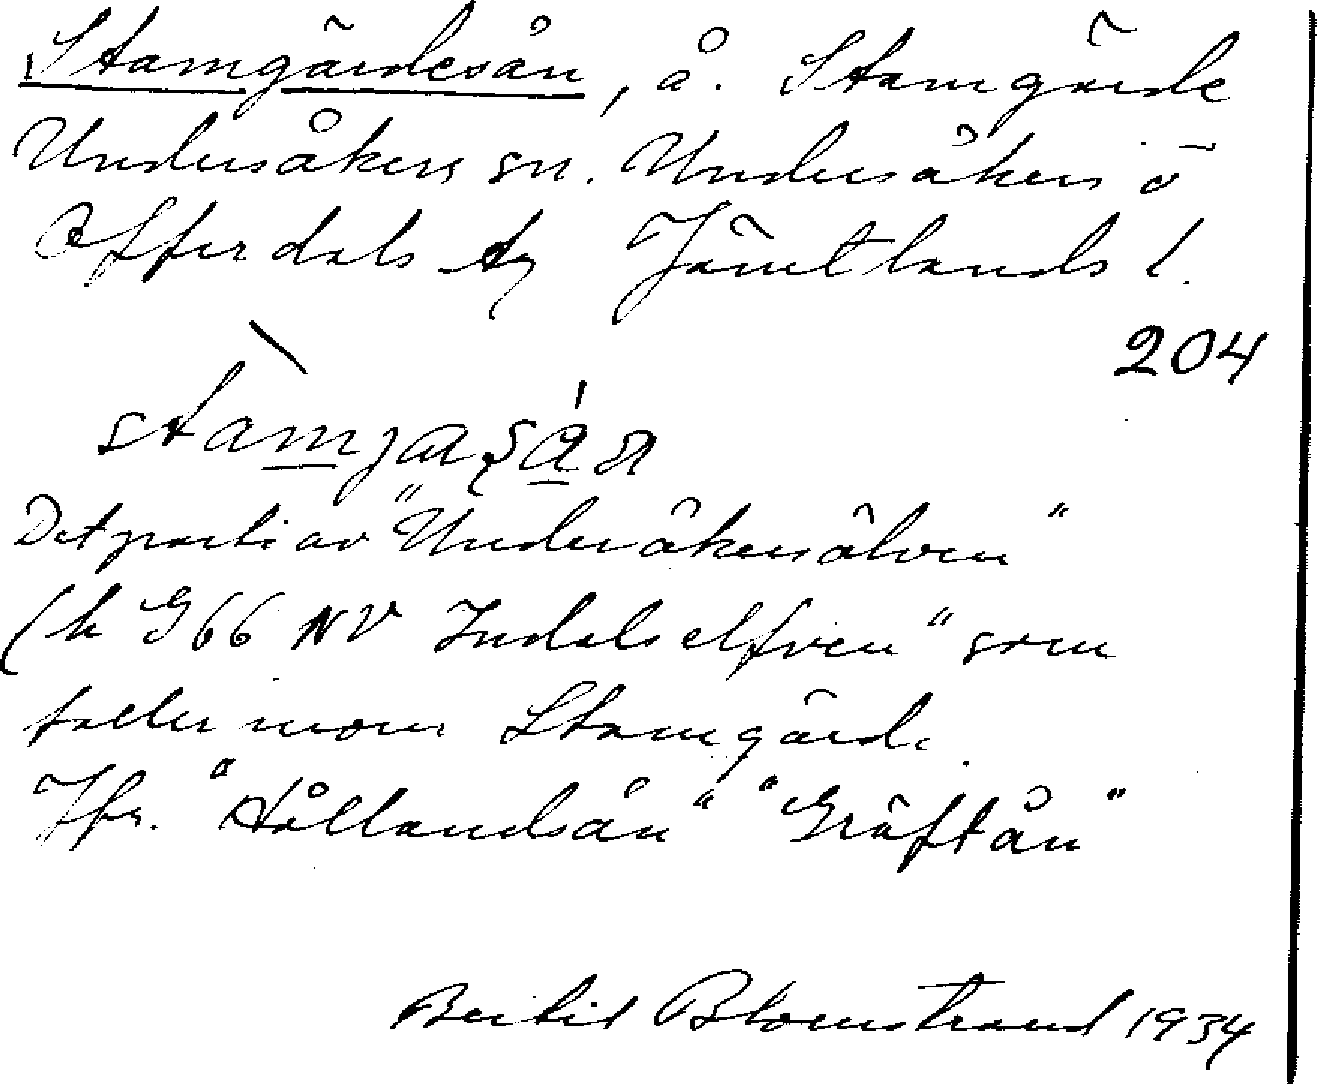 Stamgärdesån, å. Stamgärde
Undersåkers sn. Undersåkers o
Offerdals tg Jämtlands l.
204
Det parti av "Undersåkersälven"
(k G66 NV Indalselfven" som
faller inom Stamgärde.
Jfr. "Hållandsån" "Gräftån"
Bertil Blomstrand 1934